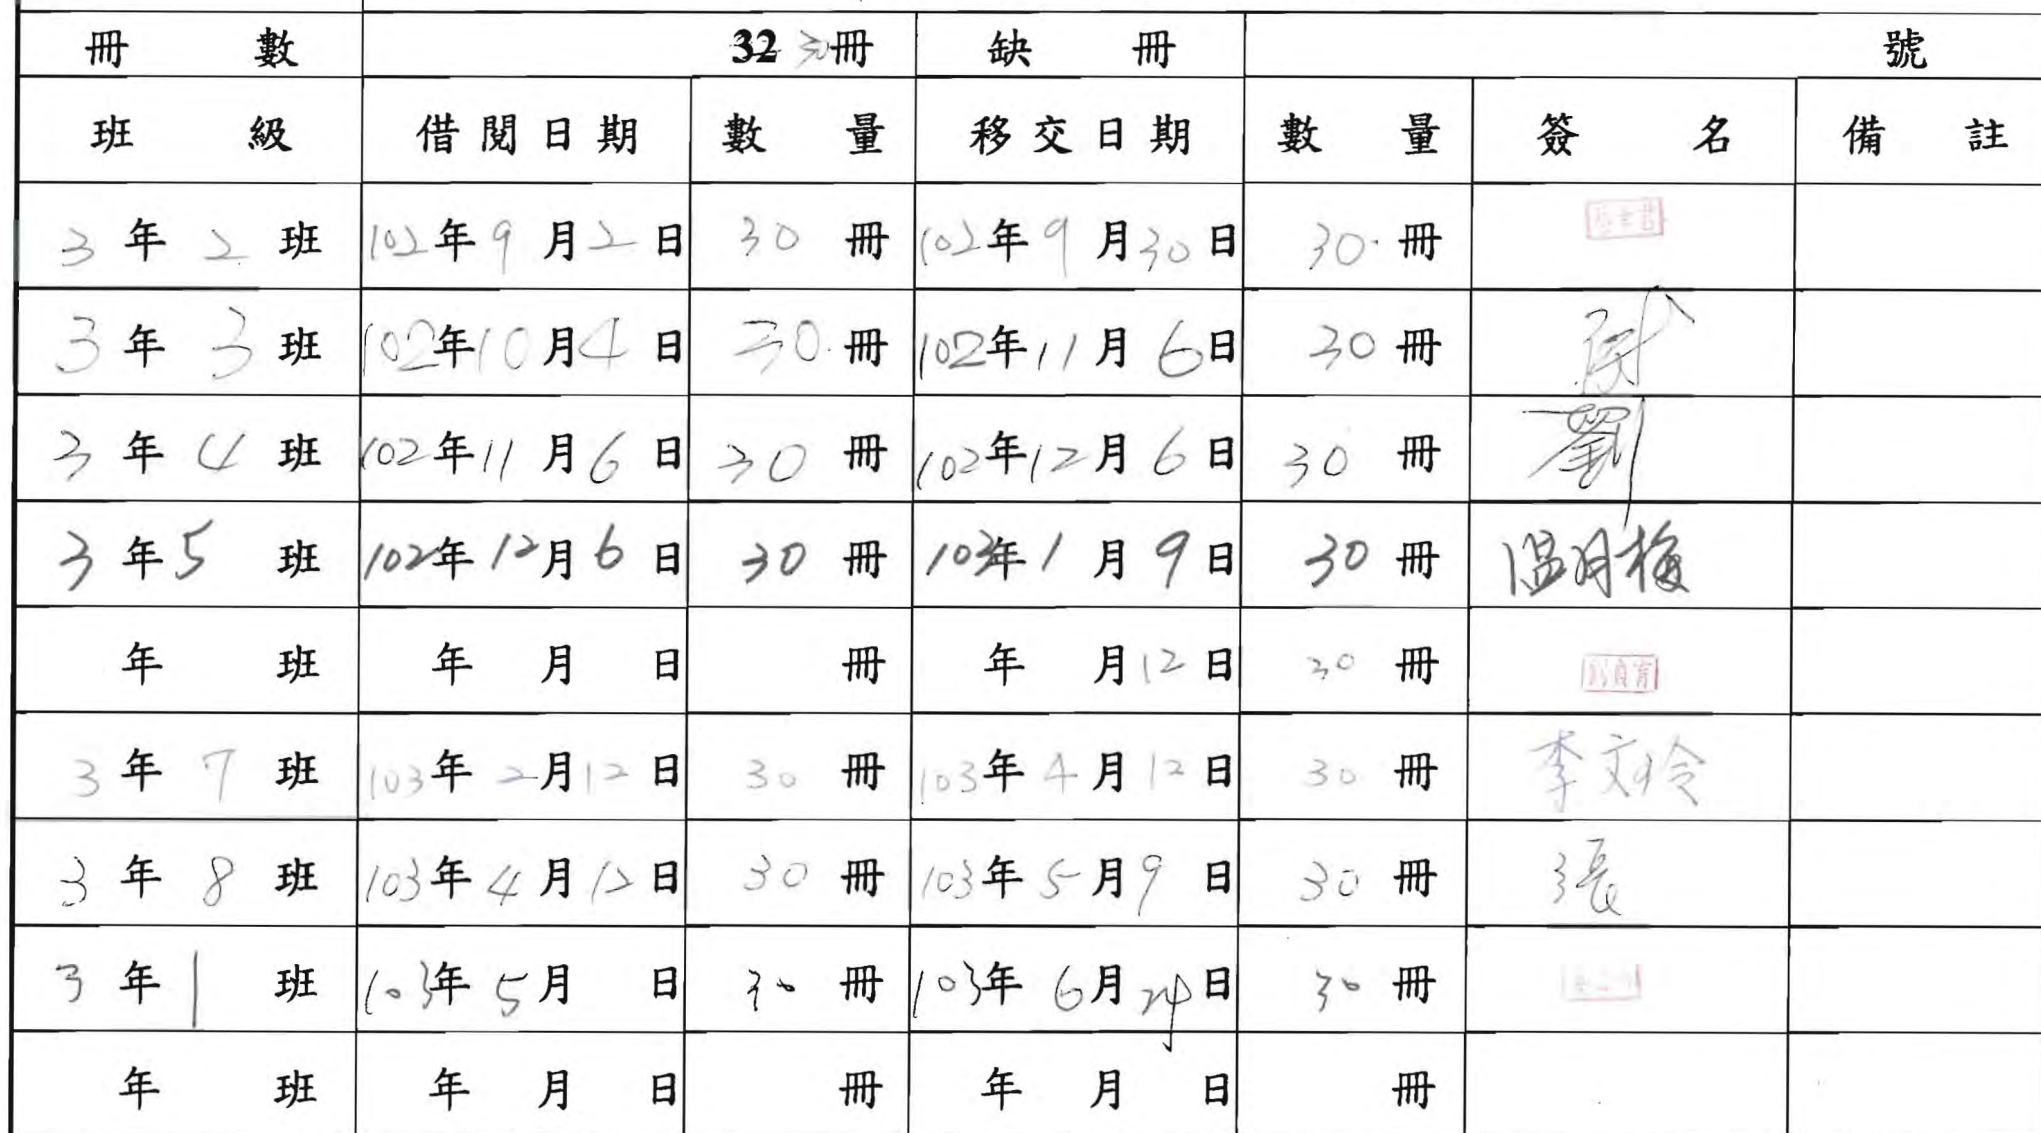 冊 數 32 30冊 缺 冊 號
班 級 借閱日期 數 量 移交日期 數 量 簽 名 備 註
3 年 2 班 102年 9 月 2 日 30 冊 102年 9 月 30 日 30 冊
3 年 3 班 102年 10 月 4 日 30 冊 102年 11 月 6 日 30 冊
3 年 4 班 102年 11 月 6 日 30 冊 102年 12 月 6 日 30 冊 劉
3 年 5 班 102年 12 月 6 日 30 冊 103年 1 月 9 日 30 冊 溫月梅
年 班 年 月 日 冊 年 月 12 日 30 冊
3 年 7 班 103年 2 月 12 日 30 冊 103年 4 月 12 日 30 冊 李文玲
3 年 8 班 103年 4 月 12 日 30 冊 103年 5 月 9 日 30 冊 張
3 年 1 班 103年 5 月 日 30 冊 103年 6 月 24 日 30 冊
年 班 年 月 日 冊 年 月 日 冊